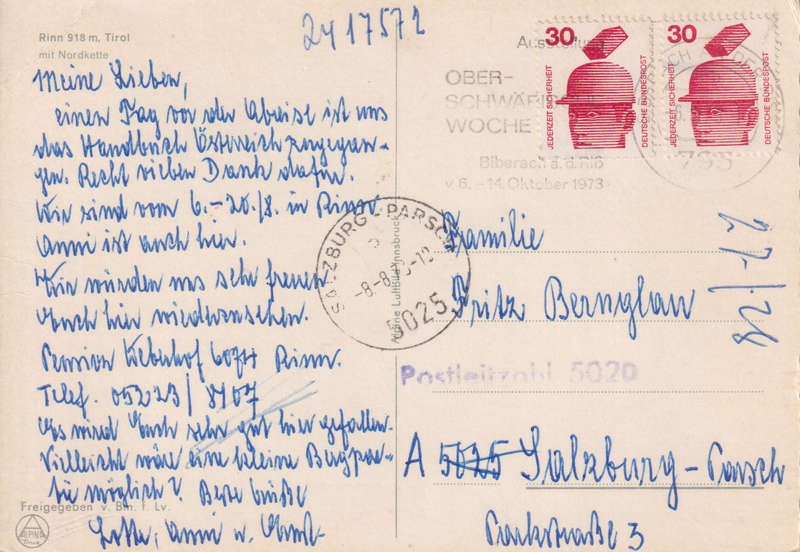 2417572
Rinn 918 m, Tirol
mit Nordkette
Meine Lieben,
einen Tag vor der Abreise ist uns
das Handbuch Österreich zugegan-
gen. Recht vielen Dank dafür.
Wir sind vom 6.-20./8. in Rinn.
Anni ist auch hier.
Wir würden uns sehr freuen
Euch hier wiederzusehen.
Pension Wiesenhof 6074 Rinn.
Telef. 05223/8107
Es wird Euch sehr gut hier gefallen.
Vielleicht wäre eine kleine Bergpar-
tie möglich? Beste Grüße
Lotte, Anni u. Ernst
Freigegeben v. Bm. f. Lv.
ALPINE
Alpine Luftbild Innsbruck
30
JEDERZEIT SICHERHEIT
DEUTSCHE BUNDESPOST
30
JEDERZEIT SICHERHEIT
DEUTSCHE BUNDESPOST
Ausstellung
OBER-
SCHWÄBISCHE
WOCHE
Biberach a. d. Riß
v. 6. - 14. Oktober 1973
795
SALZBURG - PARSCH
-8-8.
5025
Familie
Fritz Bernglau
Postleitzahl 5020
A 5025 Salzburg-Parsch
Parkstraße 3
27/28